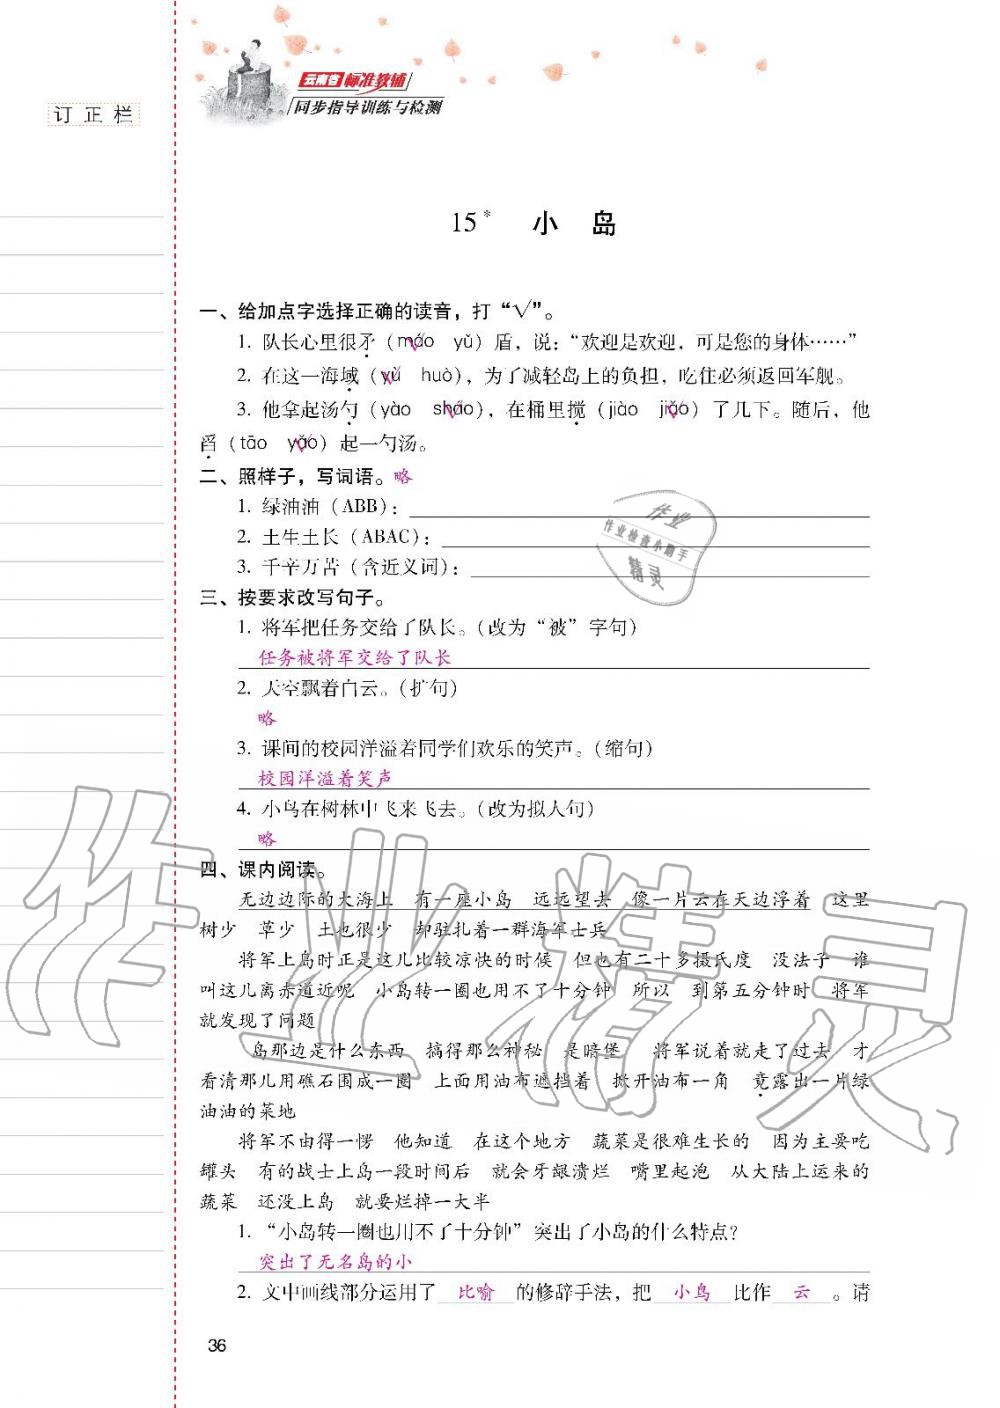 订正栏
云南省标准教辅
同步指导训练与检测
15* 小岛
一、给加点字选择正确的读音，打“√”。
1. 队长心里很矛（máo yǔ）盾，说：“欢迎是欢迎，可是您的身体……”
2. 在这一海域（yù huò），为了减轻岛上的负担，吃住必须返回军舰。
3. 他拿起汤勺（yào sháo），在桶里搅（jiào jiǎo）了几下。随后，他
舀（tāo yǎo）起一勺汤。
二、照样子，写词语。略
1. 绿油油（ABB）：
2. 土生土长（ABAC）：
3. 千辛万苦（含近义词）：
三、按要求改写句子。
1. 将军把任务交给了队长。（改为“被”字句）
任务被将军交给了队长
2. 天空飘着白云。（扩句）
略
3. 课间的校园洋溢着同学们欢乐的笑声。（缩句）
校园洋溢着笑声
4. 小鸟在树林中飞来飞去。（改为拟人句）
略
四、课内阅读。
无边边际的大海上 有一座小岛 远远望去 像一片云在天边浮着 这里
树少 草少 土也很少 却驻扎着一群海军士兵
将军上岛时正是这儿比较凉快的时候 但也有二十多摄氏度 没法子 谁
叫这儿离赤道近呢 小岛转一圈也用不了十分钟 所以 到第五分钟时 将军
就发现了问题
岛那边是什么东西 搞得那么神秘 是暗堡 将军说着就走了过去 才
看清那儿用礁石围成一圈 上面用油布遮挡着 掀开油布一角 竟露出一片绿
油油的菜地
将军不由得一愣 他知道 在这个地方 蔬菜是很难生长的 因为主要吃
罐头 有的战士上岛一段时间后 就会牙龈溃烂 嘴里起泡 从大陆上运来的
蔬菜 还没上岛 就要烂掉一大半
1. “小岛转一圈也用不了十分钟”突出了小岛的什么特点？
突出了无名岛的小
2. 文中画线部分运用了 比喻 的修辞手法，把 小鸟 比作 云 。请
36
作业
作业检查小助手
精灵
作业精灵